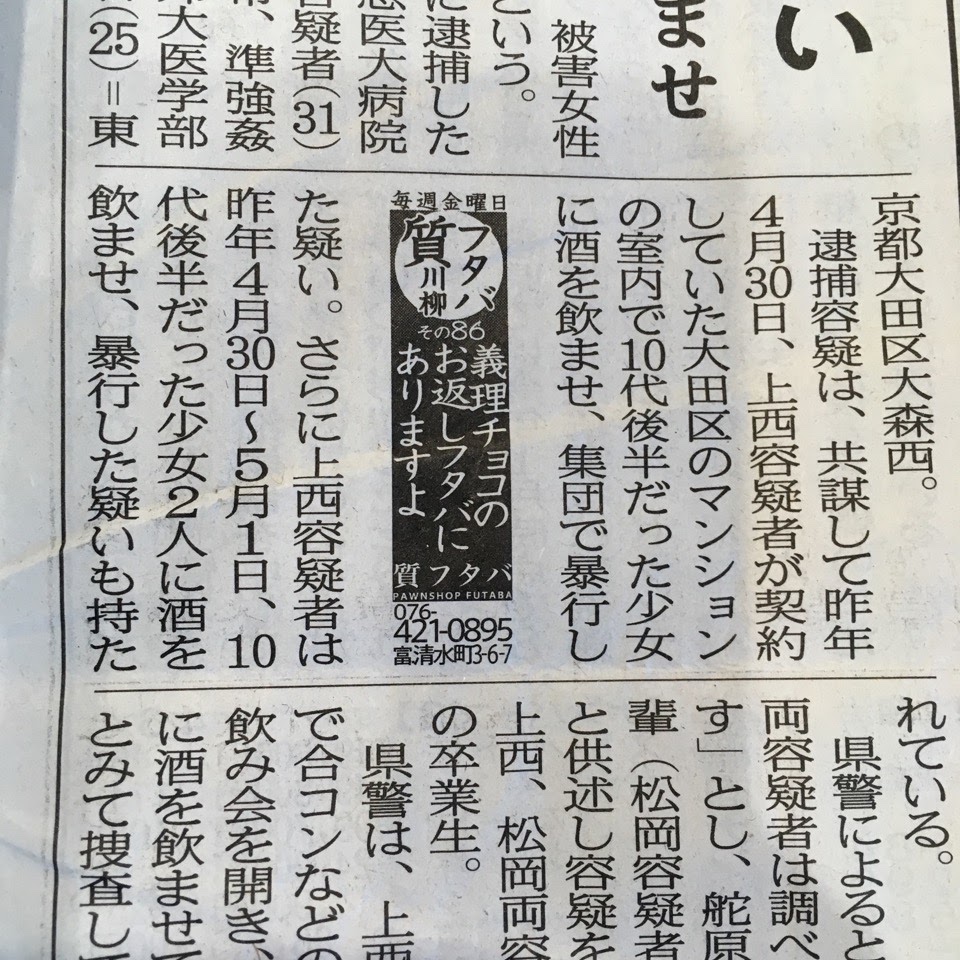 い
ませ
被害女性
という。
に逮捕した
恵医大病院
容疑者(31)
準強姦
大医学部
(25)=東
京都大田区大森西。
逮捕容疑は、共謀して昨年
4月30日、上西容疑者が契約
していた大田区のマンション
の室内で10代後半だった少女
に酒を飲ませ、集団で暴行し
毎週金曜日
フタバ
質川柳
その86
義理チョコの
お返しフタバに
ありますよ
質フタバ
PAWNSHOP FUTABA
076-
421-0895
富清水町3-6-7
た疑い。さらに上西容疑者は
昨年4月30日〜5月1日、10
代後半だった少女2人に酒を
飲ませ、暴行した疑いも持た
れている。
県警によると
両容疑者は調べ
す」とし、舵原
輩(松岡容疑者
と供述し容疑を
上西、松岡両容
の卒業生。
県警は、上西
で合コンなどの
飲み会を開き、
に酒を飲ませて
とみて捜査し